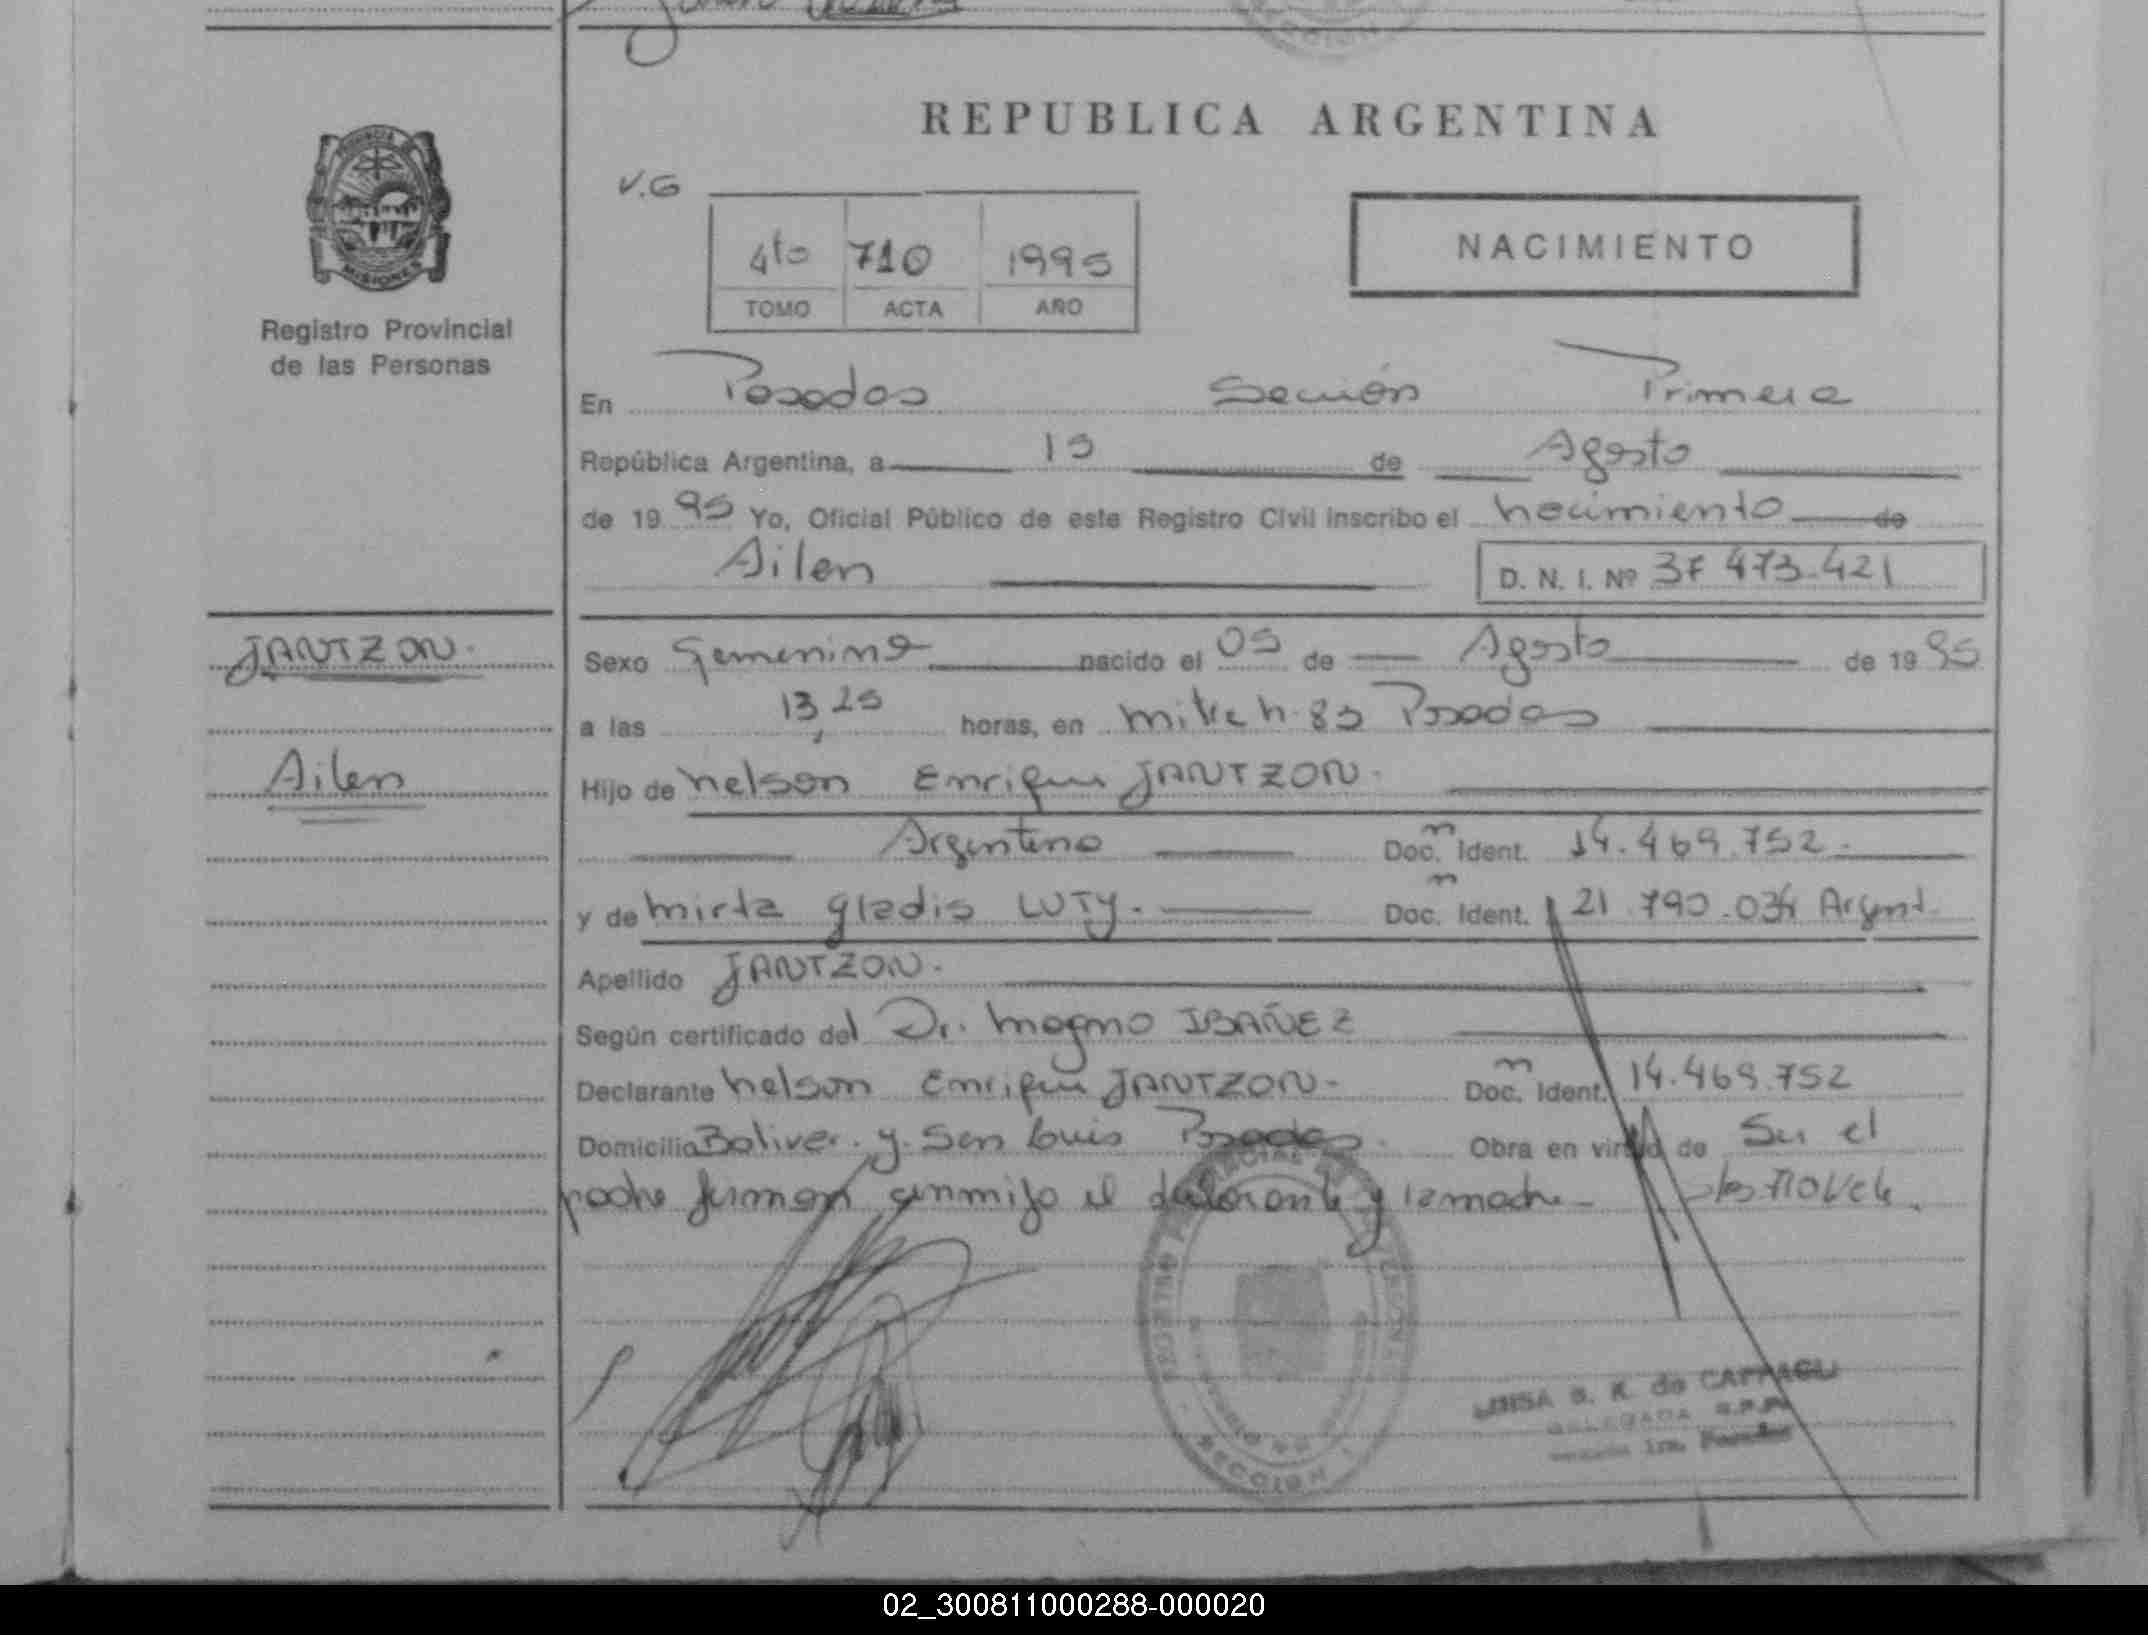 REPUBLICA ARGENTINA
PROVINCIA
MISIONES
Registro Provincial
de las Personas
V.G
4to 710 1995
TOMO ACTA AÑO
NACIMIENTO
En Posadas Sección Primera
República Argentina, a 15 de Agosto
de 1995 Yo, Oficial Público de este Registro Civil inscribo el nacimiento de
Ailen D. N. I. Nº 37 473.421
JANTZON.
Sexo Femenino nacido el 05 de Agosto de 1995
a las 13,25 horas, en mitre n. 85 Posadas
Ailen
Hijo de Nelson Enrique JANTZON.
Argentino Doc. Ident. 14.469.752.
y de Mirta Gladis LUTY. Doc. Ident. 21.790.034 Argent.
Apellido JANTZON.
Según certificado del Dr. Magno IBAÑEZ
Declarante Nelson Enrique JANTZON- Doc. Ident. 14.469.752
Domicilio Bolivar y San Luis Posadas. Obra en virtud de Ser el
padre firman conmigo el declarante y la madre-
SECCION
LUISA S. K. de
DELEGADA R.P.P.
1ra.
02_300811000288-000020